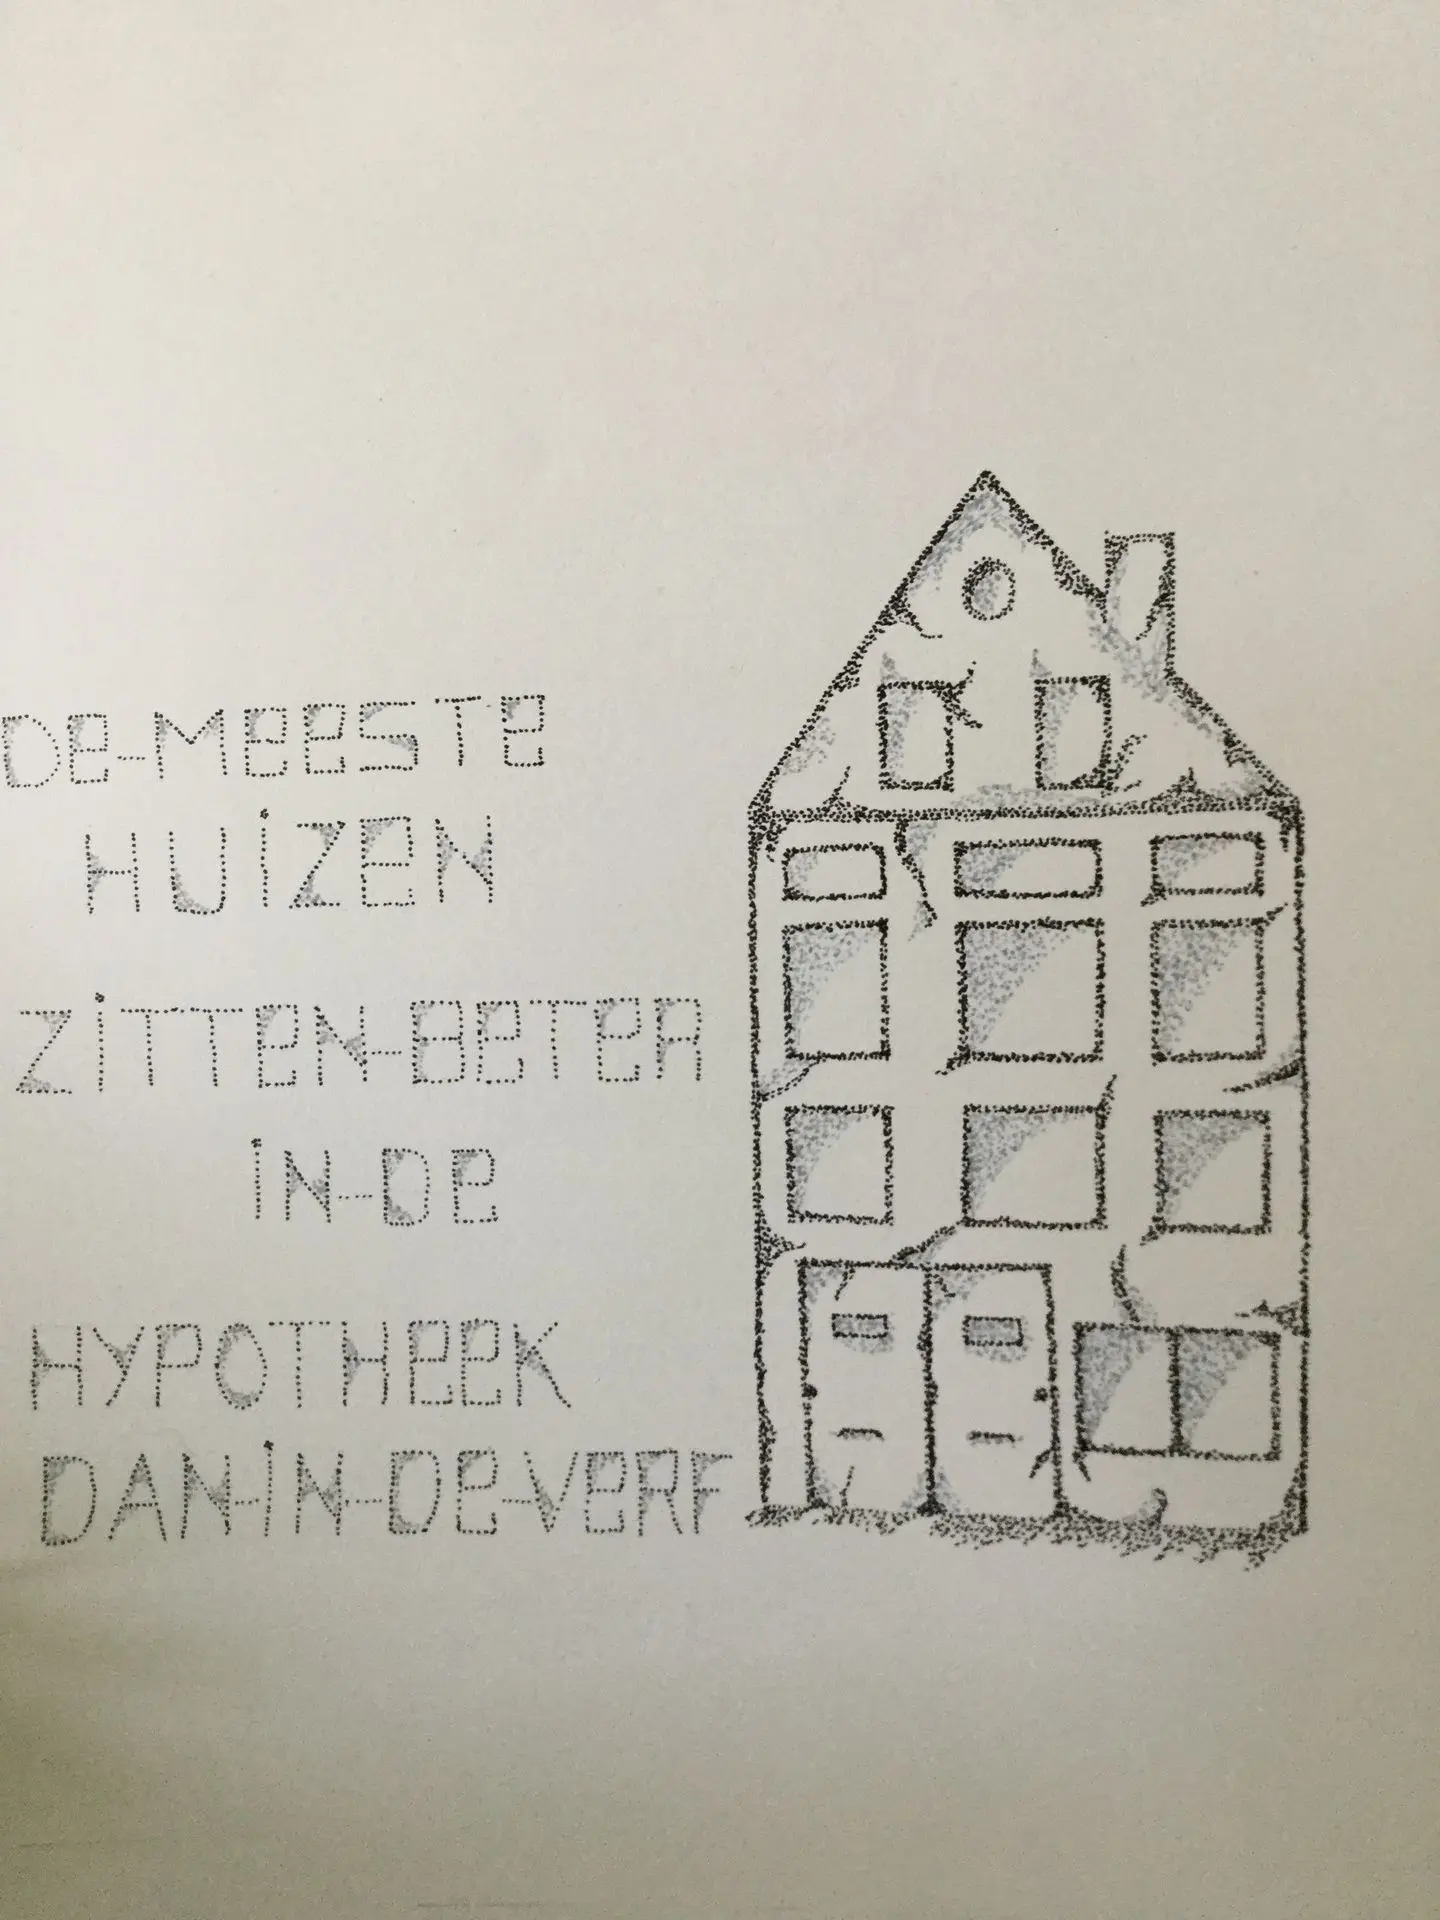 De-MeeSTe
HUiZeN
ZiTTeN-BeTeR
iN-De
HYPOTHeeK
DAN-iN-De-VeRF